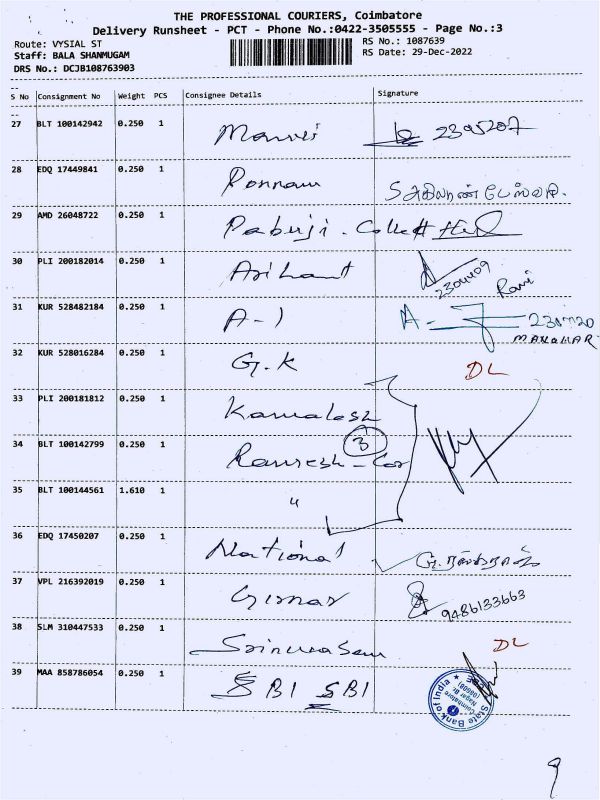 THE PROFESSIONAL COURIERS, Coimbatore
Delivery Runsheet - PCT - Phone No.:0422-3505555 - Page No.:3
Route: VYSIAL ST
RS No.: 1087639
Staff: BALA SHANMUGAM
RS Date: 29-Dec-2022
DRS No.: DCJB108763903
S No Consignment No Weight PCS Consignee Details Signature
27 BLT 100142942 0.250 1
28 EDQ 17449841 0.250 1 Ponnam
29 AMD 26048722 0.250 1 Pabuji - Collett
30 PLI 200182014 0.250 1 Arihant 2304409 Ravi
31 KUR 528482184 0.250 1 A-1 MANOHAR
32 KUR 528016284 0.250 1 G.K DL
33 PLI 200181812 0.250 1 Kamalesh
3
34 BLT 100142799 0.250 1 Ramesh - Cor
35 BLT 100144561 1.610 1 "
36 EDQ 17450207 0.250 1 National
37 VPL 216392019 0.250 1 Girnar 9486133663
38 SLM 310447533 0.250 1 Srinivasan DL
39 MAA 858786054 0.250 1 SBI SBI
State Bank of India
Coimbatore
9